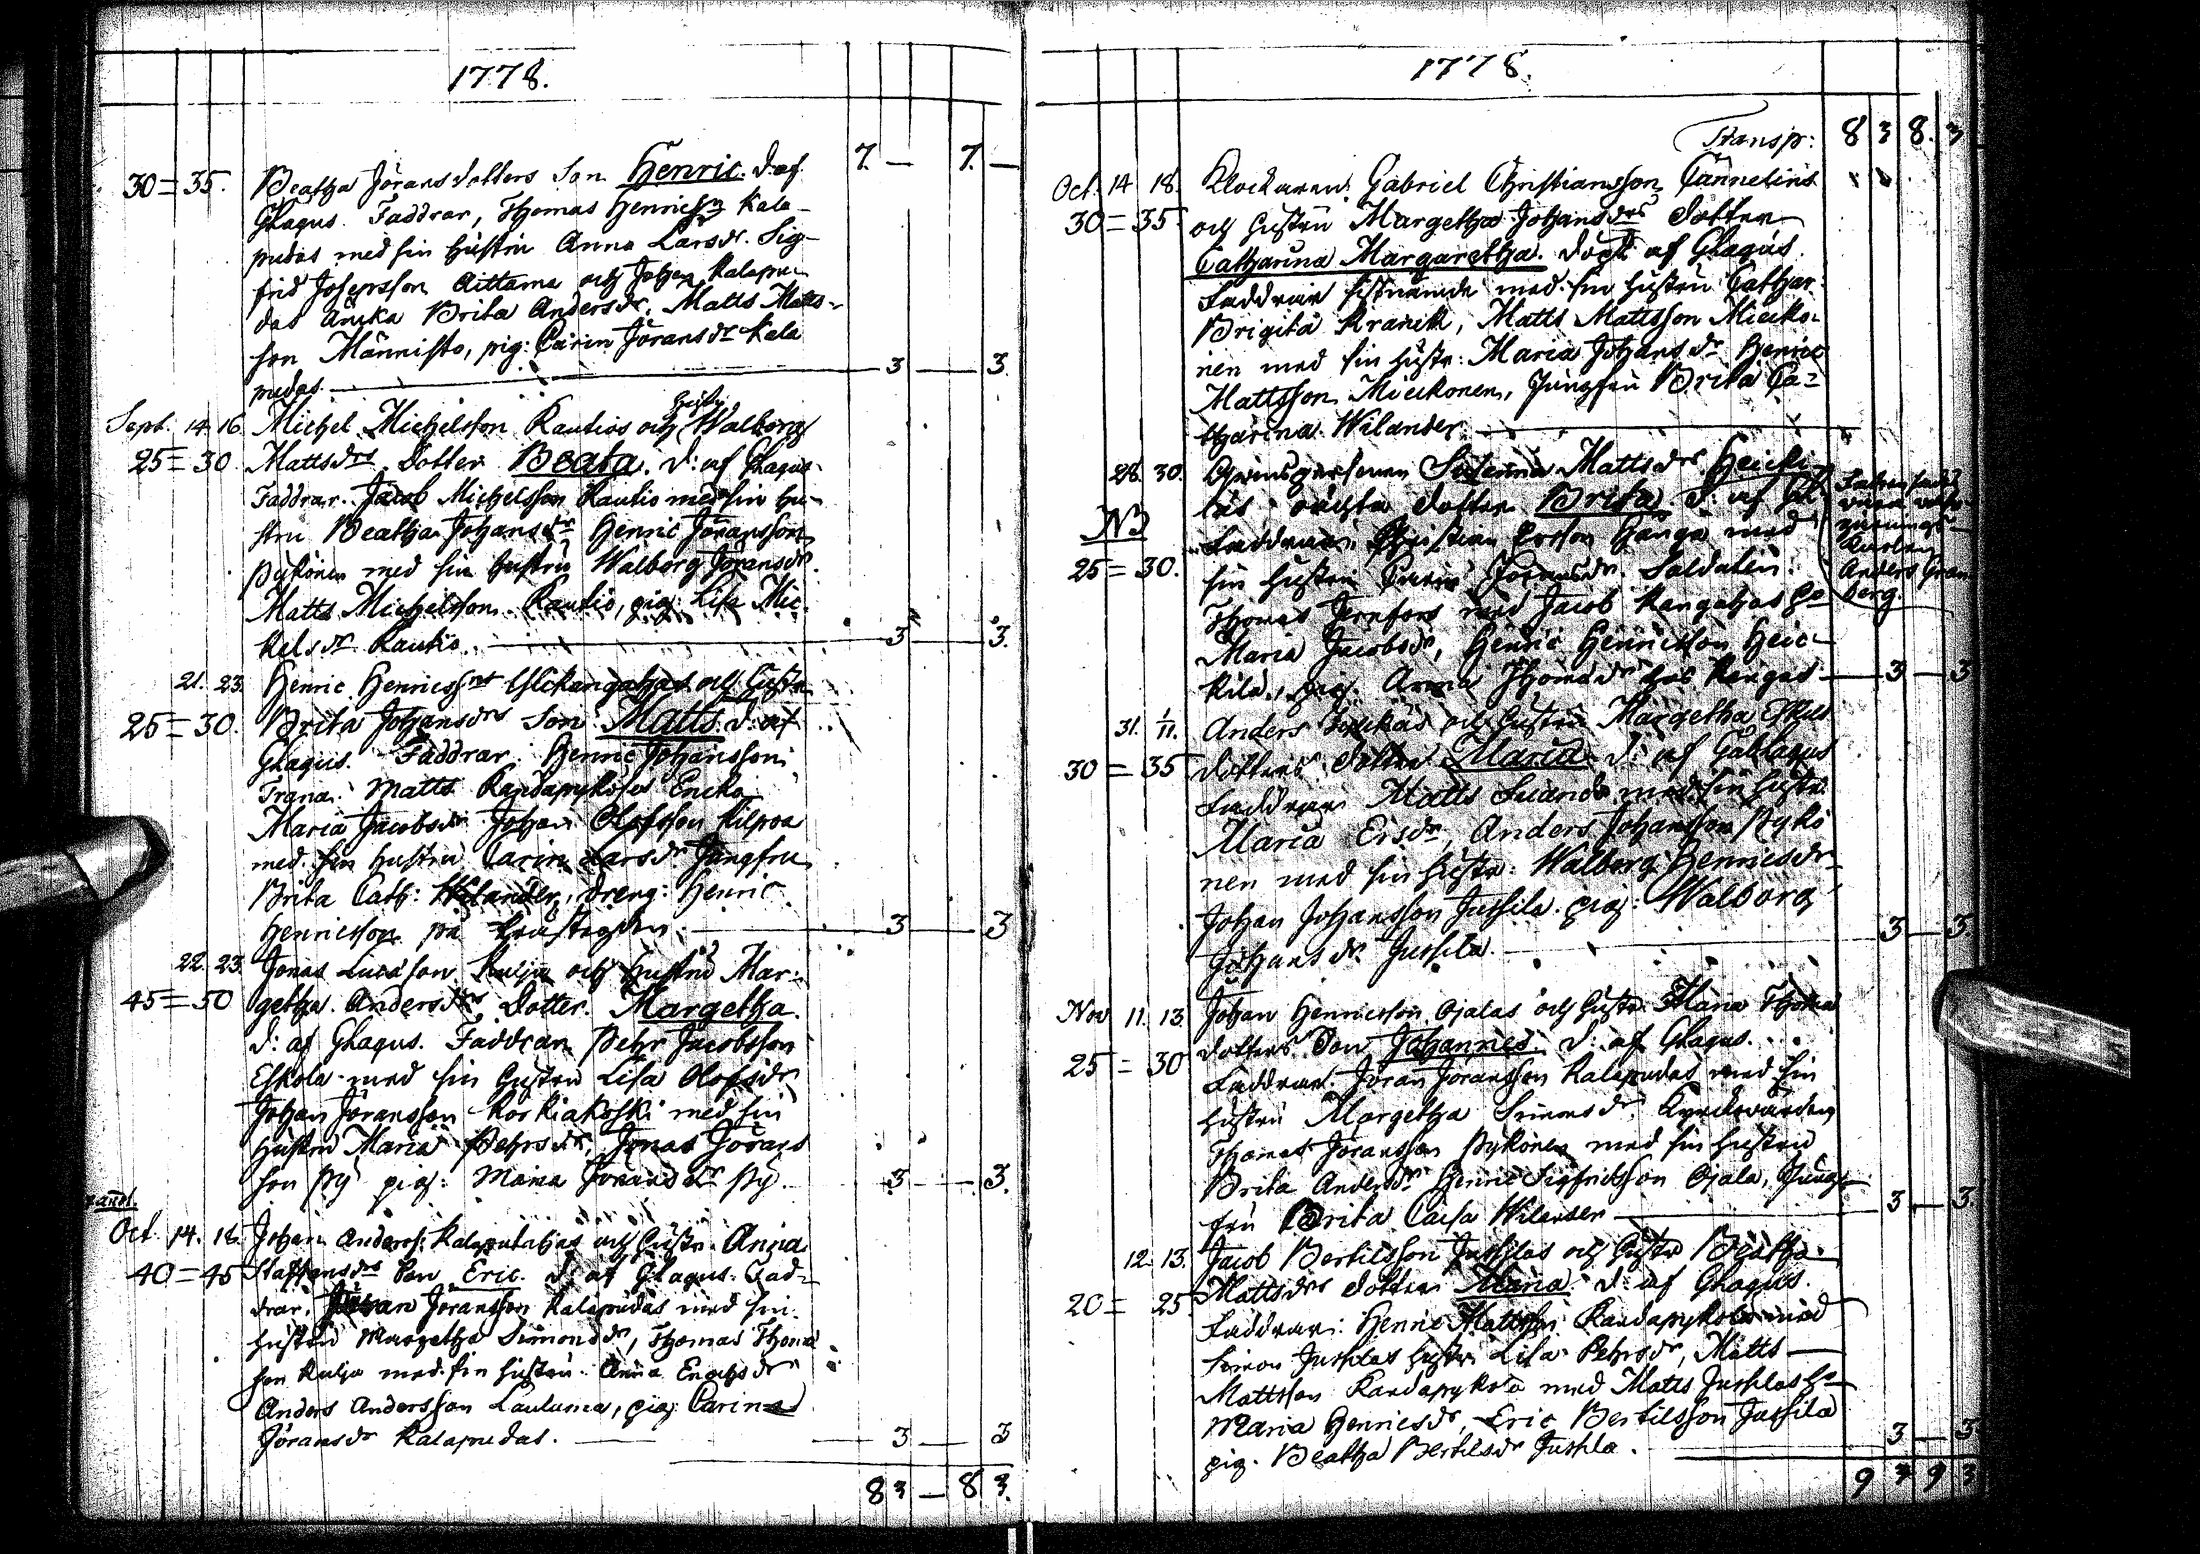 1778.
7. — 7. —
30 = 35. Beatha Jöransdotters Son Henric. d: af
Glagus. Faddrar, Thomas Henricsson Kala-
pudas med sin hustru Anna Larsdr. Sig-
frid Josepsson Aittama och Johan Kalapu-
das Änka Brita Andersdr. Matts Matts-
son Männisto, pig: Carin Jöransdr Kala
pudas. — 3 — 3.
Sept. 14. 16. Michel Michelsson Rautios och hustru Walborg
25 = 30. Mattsdrs Dotter Beata. d: af Glagus.
Faddrar. Jacob Michelsson Rautio med sin hu-
stru Beatha Johansdr Henric Jöransson
Pykönen med sin hustru Walborg Jöransdr.
Matts Michelsson Rautio, pig: Lisa Mic-
kelsdr Rautio. — 3 — 3.
21. 23. Henric Henricssons och hustr.
25 = 30. Brita Johansdrs Son Matts d: af
Glagus. Faddrar. Henric Johansson
Frana. Matts Encka
Maria Jacobsdr Johan Olofsson Kilpoa
med sin hustru Carin Larsdr Jungfru
Brita Cath: Wilander, dreng: Henric
Henricsson på — 3 — 3
22. 23. Jonas Lucasson Kulju och hustru Mar-
45 = 50 getha Andersdrs Dotter Margetha.
d: af Glagus. Faddrar Pehr Jacobsson
Eskola med sin hustru Lisa Olofsdr
Johan Jöransson Korkiakoski med sin
hustru Maria Pehrsdr, Jonas Jörans
son Py pig: Maria Jöransdr Py. — 3 — 3.
Oct. 14. 18. Johan Anderss: Kalaputahas och hustr. Anna
40 = 45 Staffansdrs Son Eric. d: af Glagus. Fad-
drar. Johan Jöransson Kalapudas med sin
hustru Margetha Simonsdr, Thomas Thomæ
son Kulju med sin hustru Anna Erichsdr
Anders Andersson Laulumaa, pig: Carin
Jöransdr Kalapudas. — 3 — 3
83 — 83.
1778.
Transp: 8 3 8. 3
Oct. 14 18. Klockaren Gabriel Christiansson Cannelins
30 = 35 och hustru Margetha Johansdrs Dotter
Catharina Margaretha. döpt af Glagus.
Faddrar med sin hustru Cathar:
Brigita Kranck, Matts Mattsson Mieiko-
nen med sin hustr: Maria Johansdr Henric
Mattsson Mieikonen, Jungfru Brita Ca-
tharina Wilander. —
28. 30. Mattsdrs Heicki
NB oächta dotter Brita d: af Gl.
Faddrar Christian Ersson Hanga med
25 = 30. sin hustru Carin Jöransdr. Soldaten
Thomas med Jacob Kangahas
Maria Jacobsdr, Henric Henricsson Heic-
kilä, pig. Anna Thomædr hos Kangas — 3 — 3
Anders Gran
berg.
31. 1/11. Anders och hustru Margetha
30 = 35 dotters dotter Maria d: af Gallagus
Faddrar Matts med sin hustr.
Maria Ersdr, Anders Johansson Pykö
nen med sin hustr: Walborg Henricsdr
Johan Johansson Jussila. pig: Walborg
Johansdr Jussila. — 3 — 3
Nov 11. 13. Johan Henricsson Ojalas och hustr. Maria Thomæ
25 = 30 dotters Son Johannes. d: af Glagus.
Faddrar. Jöran Jöransson Kalapudas med sin
hustru Margetha Simonsdr. Kyrckvärden
Thomas Jöransson Pykönen med sin hustru
Brita Andersdr Henric Sigfridsson Ojala, Jung-
fru Brita Caisa Wilander — 3 — 3
12. 13. Jacob Bertilsson Jussilas och hustr Beatha
20 = 25 Mattsdrs dotter Maria d: af Glagus.
Faddrar: Henric Mattsson med
Simon Jussilas hustr. Lisa Pehrsdr, Matts —
Mattsson med Matts Jussilas
Maria Henricsdr, Eric Bertilsson Jussila
pig. Beatha Bertilsdr Jussila. — 3 — 3
9 3 9 3